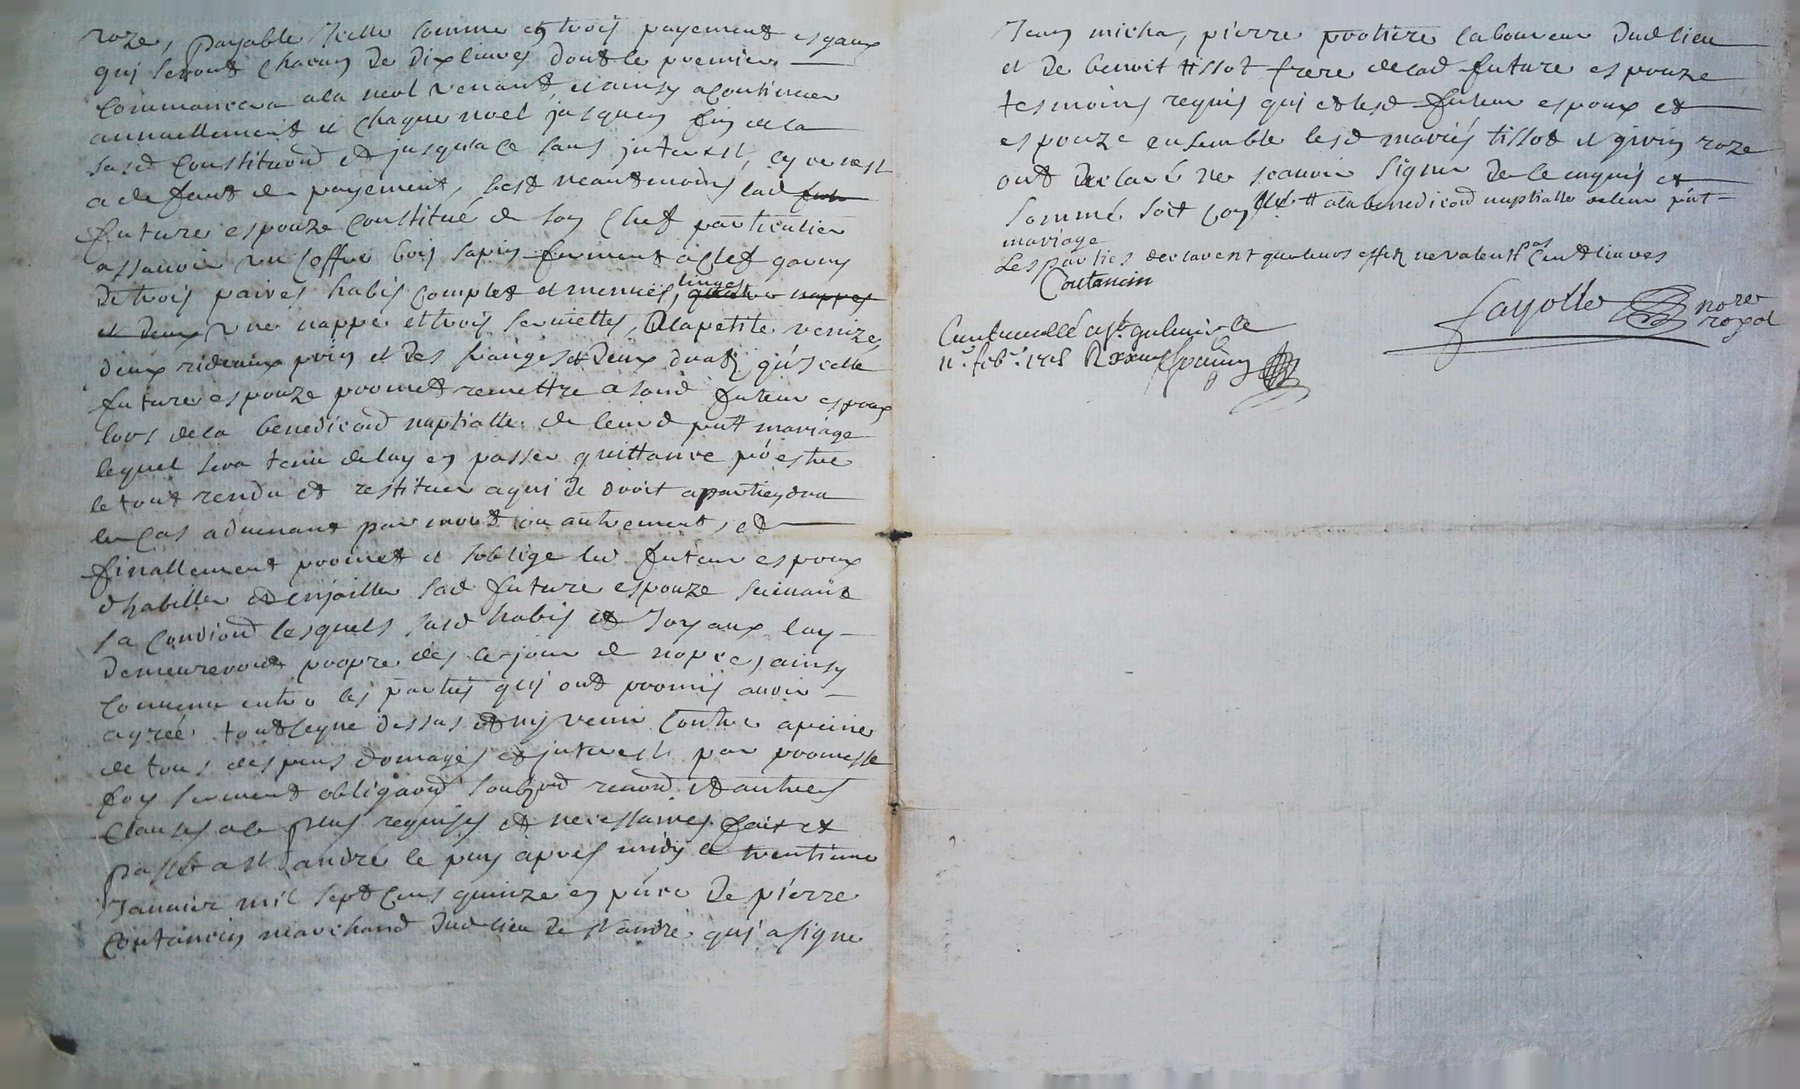 roze, payable icelle somme en trois payement esgaux
qui seront chacun de dix livres dont le premier
commancera a la noel venant, et ainsy a continuer
annuellement et chaque noel jusques fin de la
susd constituond et jusqu'a ce sans interest, sy ce nest
a deffaut de payement, sest neantmoins lad fut
future espouze constitué de son chef particulier
assavoir un coffre bois sapin fermant a clef garny
de trois paires habis complet et menues linges, quatre nappes
et deux une nappe et trois serviettes, a la petite venize,
deux rideaux et des franges et deux dratz qu'icelle
future espouze promet remettre a sond futeur espoux
lors de la benedicond nuptialle de leurd pnt mariage
lequel sera tenu de luy en passer quittance po estre
le tout rendu et restituer a qui de droit apartiendra
le cas advenant par mort ou autrement, et
finallement promet et soblige led futeur espoux
dhabiller et enjoailler sad future espouze suivant
sa condiond lesquels susd habis et joyaux luy
demeureront propre des le jour de nopces, ainsy
convenu entre les parties qui ont promis avoir
agreé tout ce que dessus et ny venir contre a peine
de tous despens domages et interests par promesse
foy serment obligaond soubzond renond et autres
clauses a ce plus requises et necessaires fait et
passé a st andré le puy apres midy le trentieme
Janvier mil sept cens quinze en pnce de pierre
Coutancin marchand dud lieu de st andré qui a signe
Jean micha, pierre protiere laboureur dud lieu
et de benoit tissot frere de lad future espouze
tesmoins requis qui et lesd futeur espoux et
espouze ensemble lesd mariés tissot et givin roze
ont declaré ne scavoir signer de ce enquis et
sommé soit a la benedicond nuptialle de leur pnt
mariage
Les parties declarent que leurs effetz ne valent pas cent livres
Coutancin
Fayolle nore
royal
Controllé a st galmier le
11e feb. 1715 R